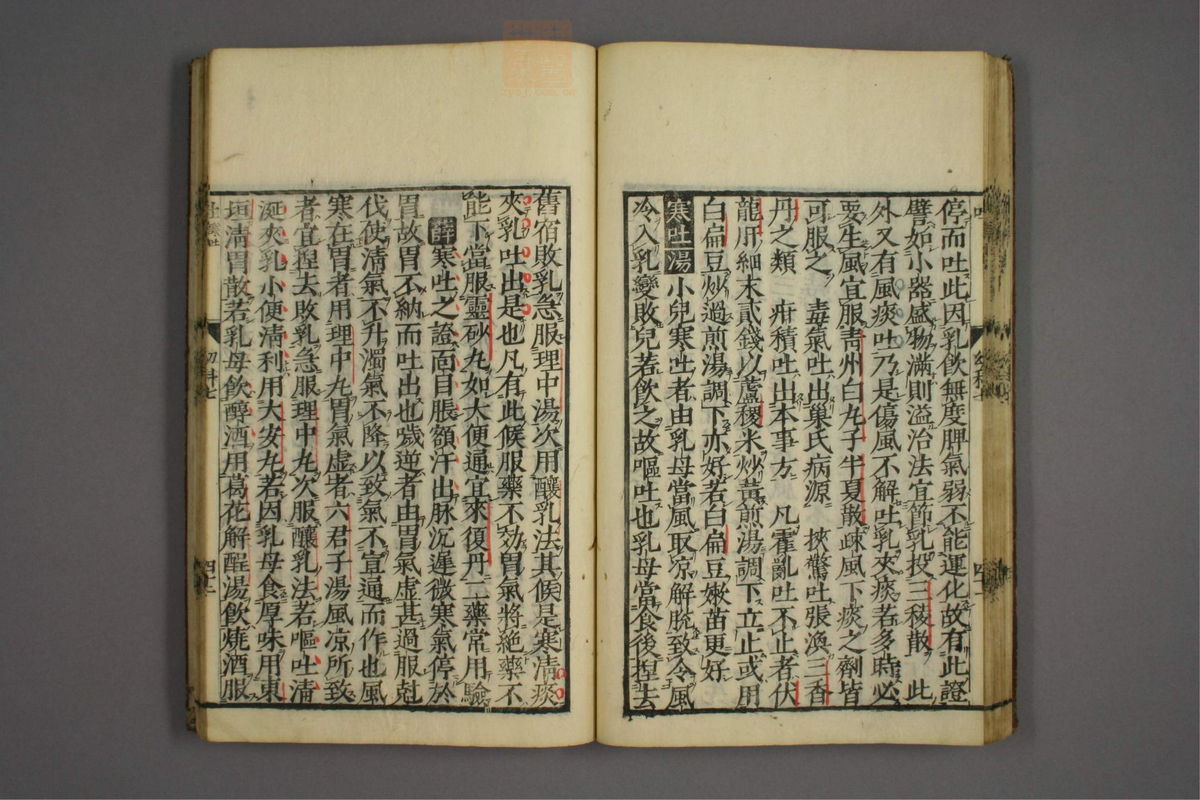 停而吐此因乳飲無度脾氣弱不能運化故有此證
譬如小器盛物滿則溢治法宜節乳投三稜散　此
外又有風痰吐乃是傷風不解吐乳夾痰若多時必
要生風宜服青州白丸子半夏散疎風下痰之劑皆
可服之　毒氣吐出巢氏病源　挾驚吐張渙三香
丹之類　疳積吐出本事方　凡霍亂吐不止者伏
龍肝細末貳錢以薏稷米炒黃煎湯調下立止或用
白扁豆炒過煎湯調下亦好若白扁豆嫩苗更好
寒吐湯　小兒寒吐者由乳母當風取凉解脫致令風
冷入乳變敗兒若飲之故嘔吐也乳母當食後捏去
舊宿敗乳急服理中湯次用釀乳法其候是寒清痰
夾乳吐出是也凡有此候服藥不効胃氣將絕藥不
能下當服靈砂丸如大便通宜來復丹二藥常用驗
薛寒吐之證面目脹額汗出脉沉遲微寒氣停於
胃故胃不納而吐出也噦逆者由胃氣虛甚過服尅
伐使清氣不升濁氣不降以致氣不宣通而作也風
寒在胃者用理中丸胃氣虛者六君子湯風凉所致
者宜捏去敗乳急服理中丸次服釀乳法若嘔吐清
涎夾乳小便清利用大安丸若因乳母食厚味用東
垣清胃散若乳母飲醇酒用葛花解酲湯飲燒酒服